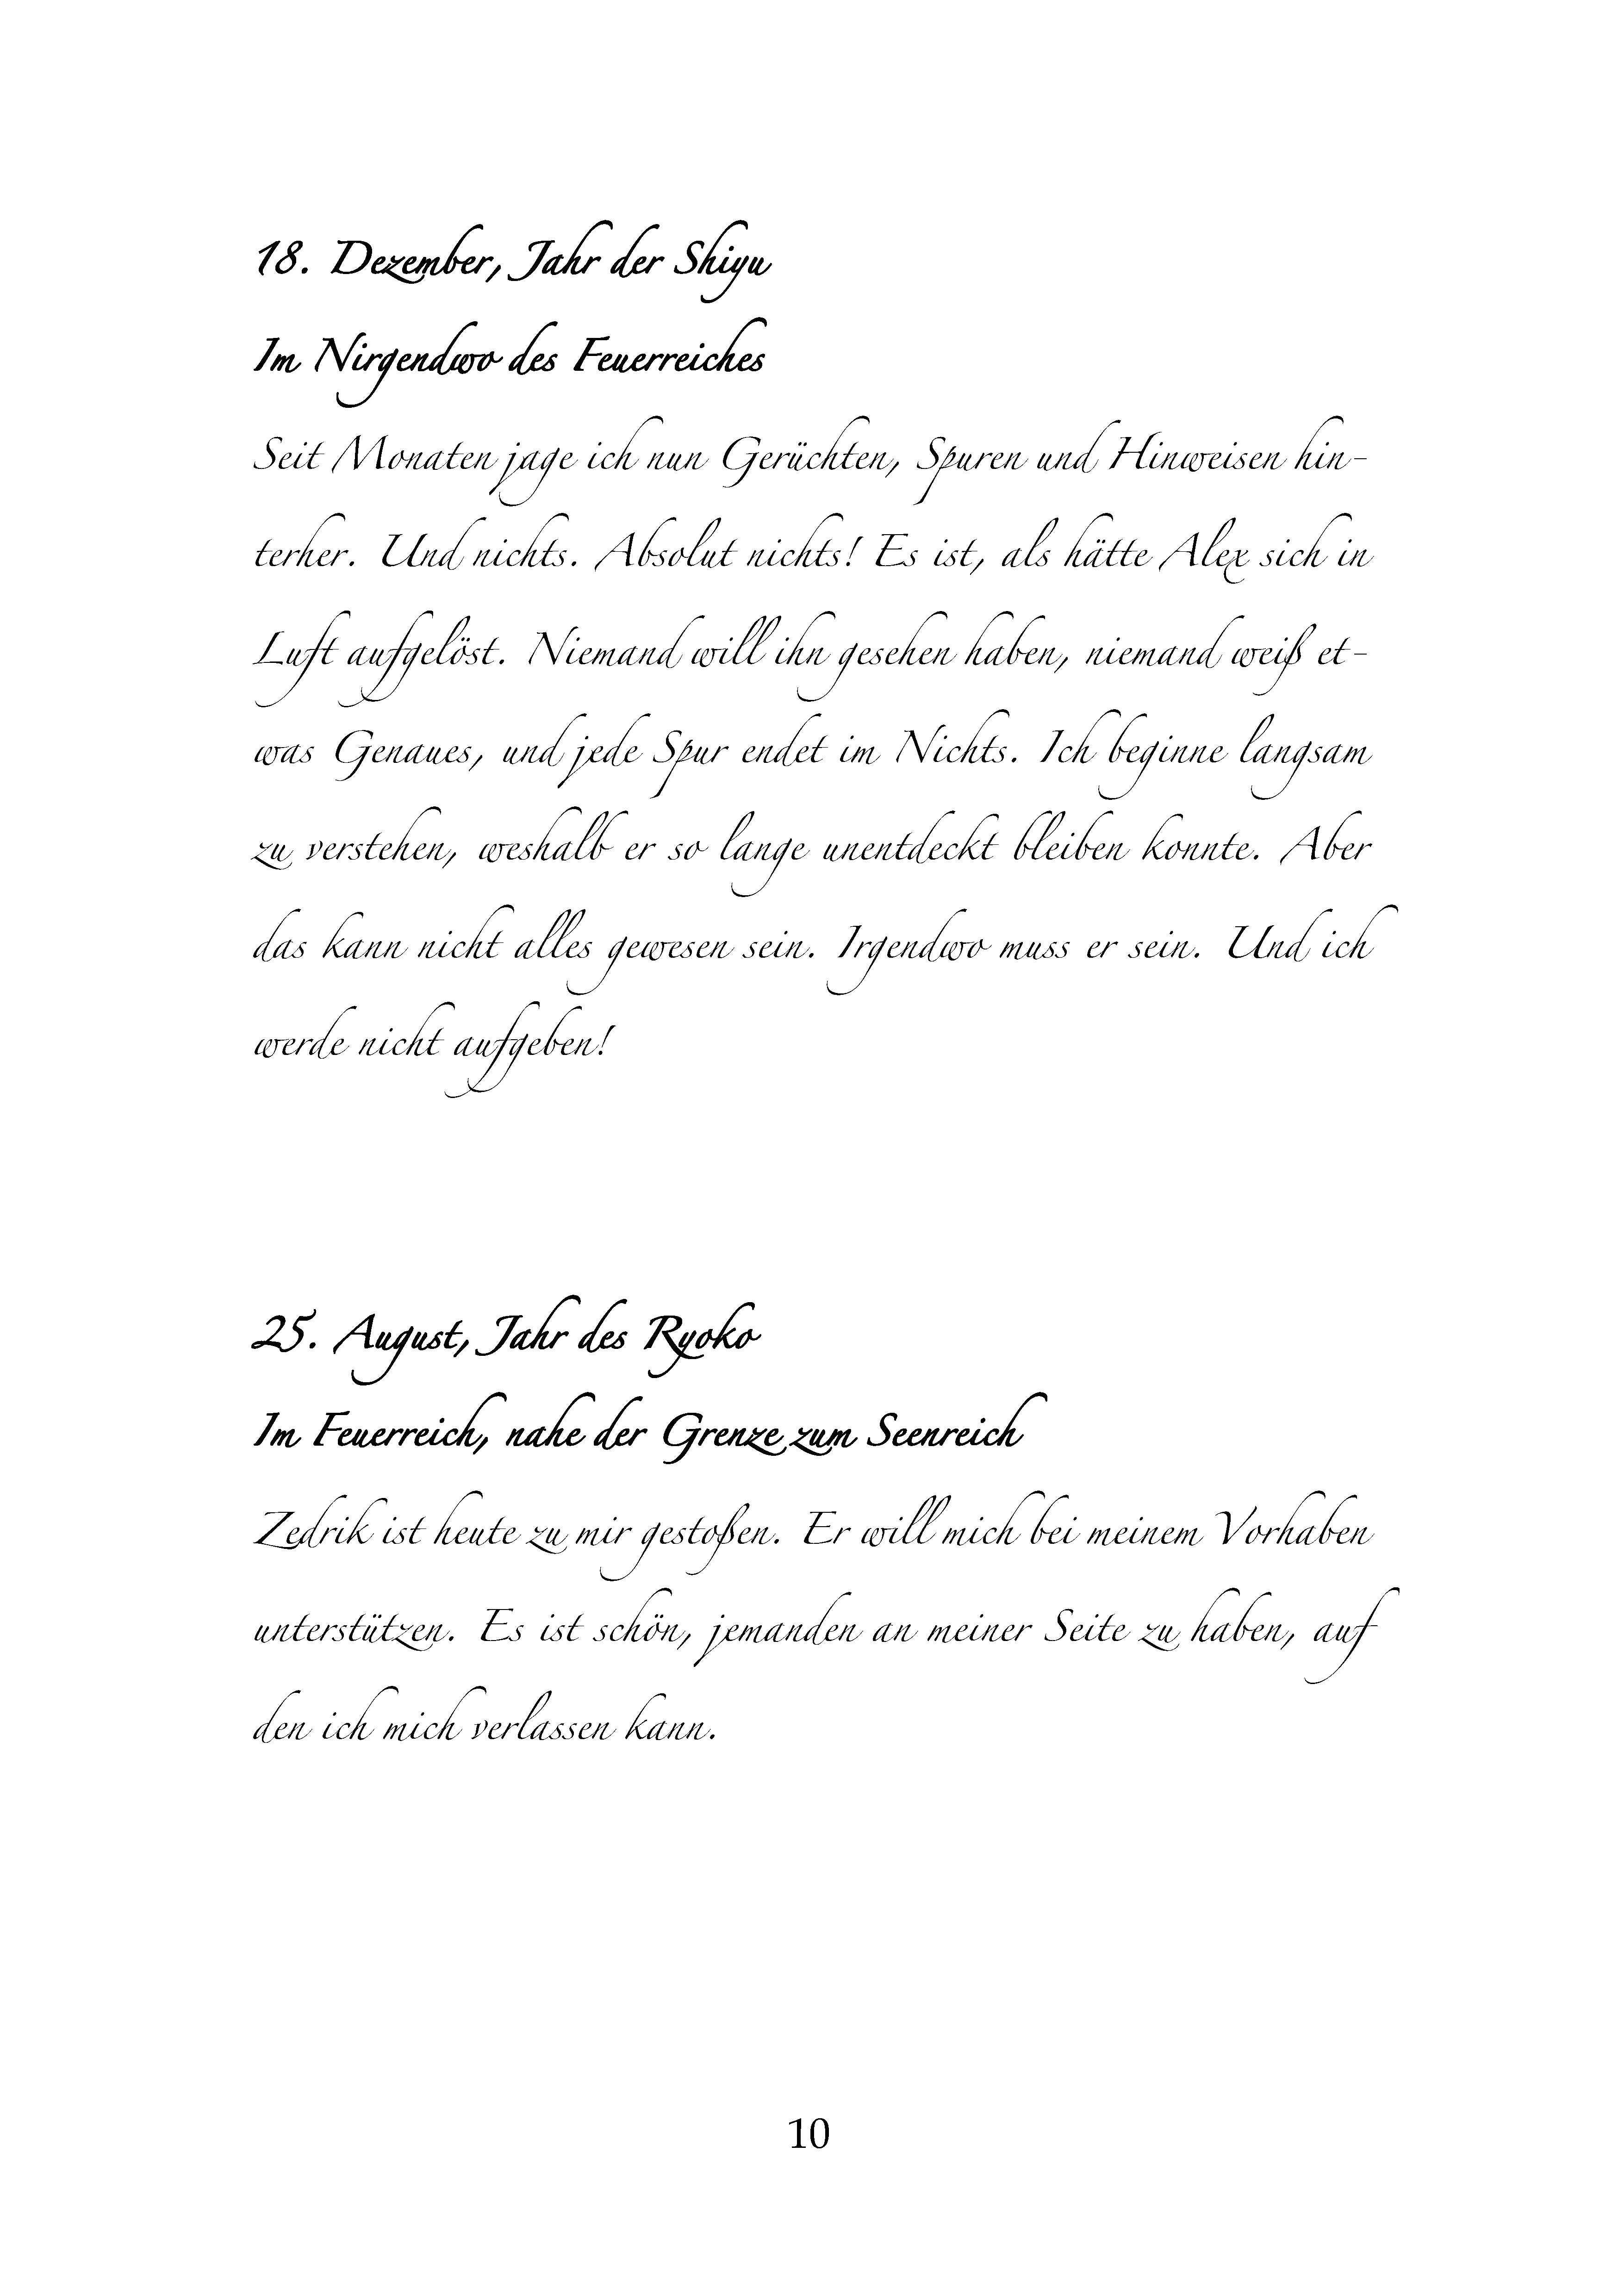 18. Dezember, Jahr der Shigu
Im Nirgendwo des Feuerreiches
Seit Monaten jage ich nun Gerüchten, Spuren und Hinweisen hin-
terher. Und nichts. Absolut nichts! Es ist, als hätte Alex sich in
Luft aufgelöst. Niemand will ihn gesehen haben, niemand weiß et-
was Genaues, und jede Spur endet im Nichts. Ich beginne langsam
zu verstehen, weshalb er so lange unentdeckt bleiben konnte. Aber
das kann nicht alles gewesen sein. Irgendwo muss er sein. Und ich
werde nicht aufgeben!
25. August, Jahr des Ryoko
Im Feuerreich, nahe der Grenze zum Seenreich
Zedrik ist heute zu mir gestoßen. Er will mich bei meinem Vorhaben
unterstützen. Es ist schön, jemanden an meiner Seite zu haben, auf
den ich mich verlassen kann.
10